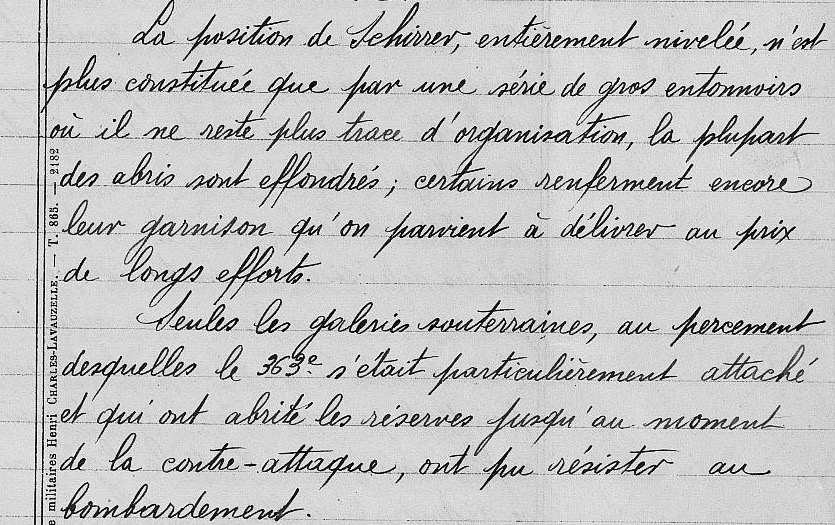 La position de Schirrer, entièrement nivelée, n'est
plus constituée que par une série de gros entonnoirs
où il ne reste plus trace d'organisation, la plupart
des abris sont effondrés ; certains renferment encore
leur garnison qu'on parvient à délivrer au prix
de longs efforts.
Seules les galeries souterraines, au percement
desquelles le 363e s'était particulièrement attaché
et qui ont abrité les réserves jusqu'au moment
de la contre-attaque, ont pu résister au
bombardement.
e militaires Henri CHARLES-LAVAUZELLE. — T. 865. — 2182